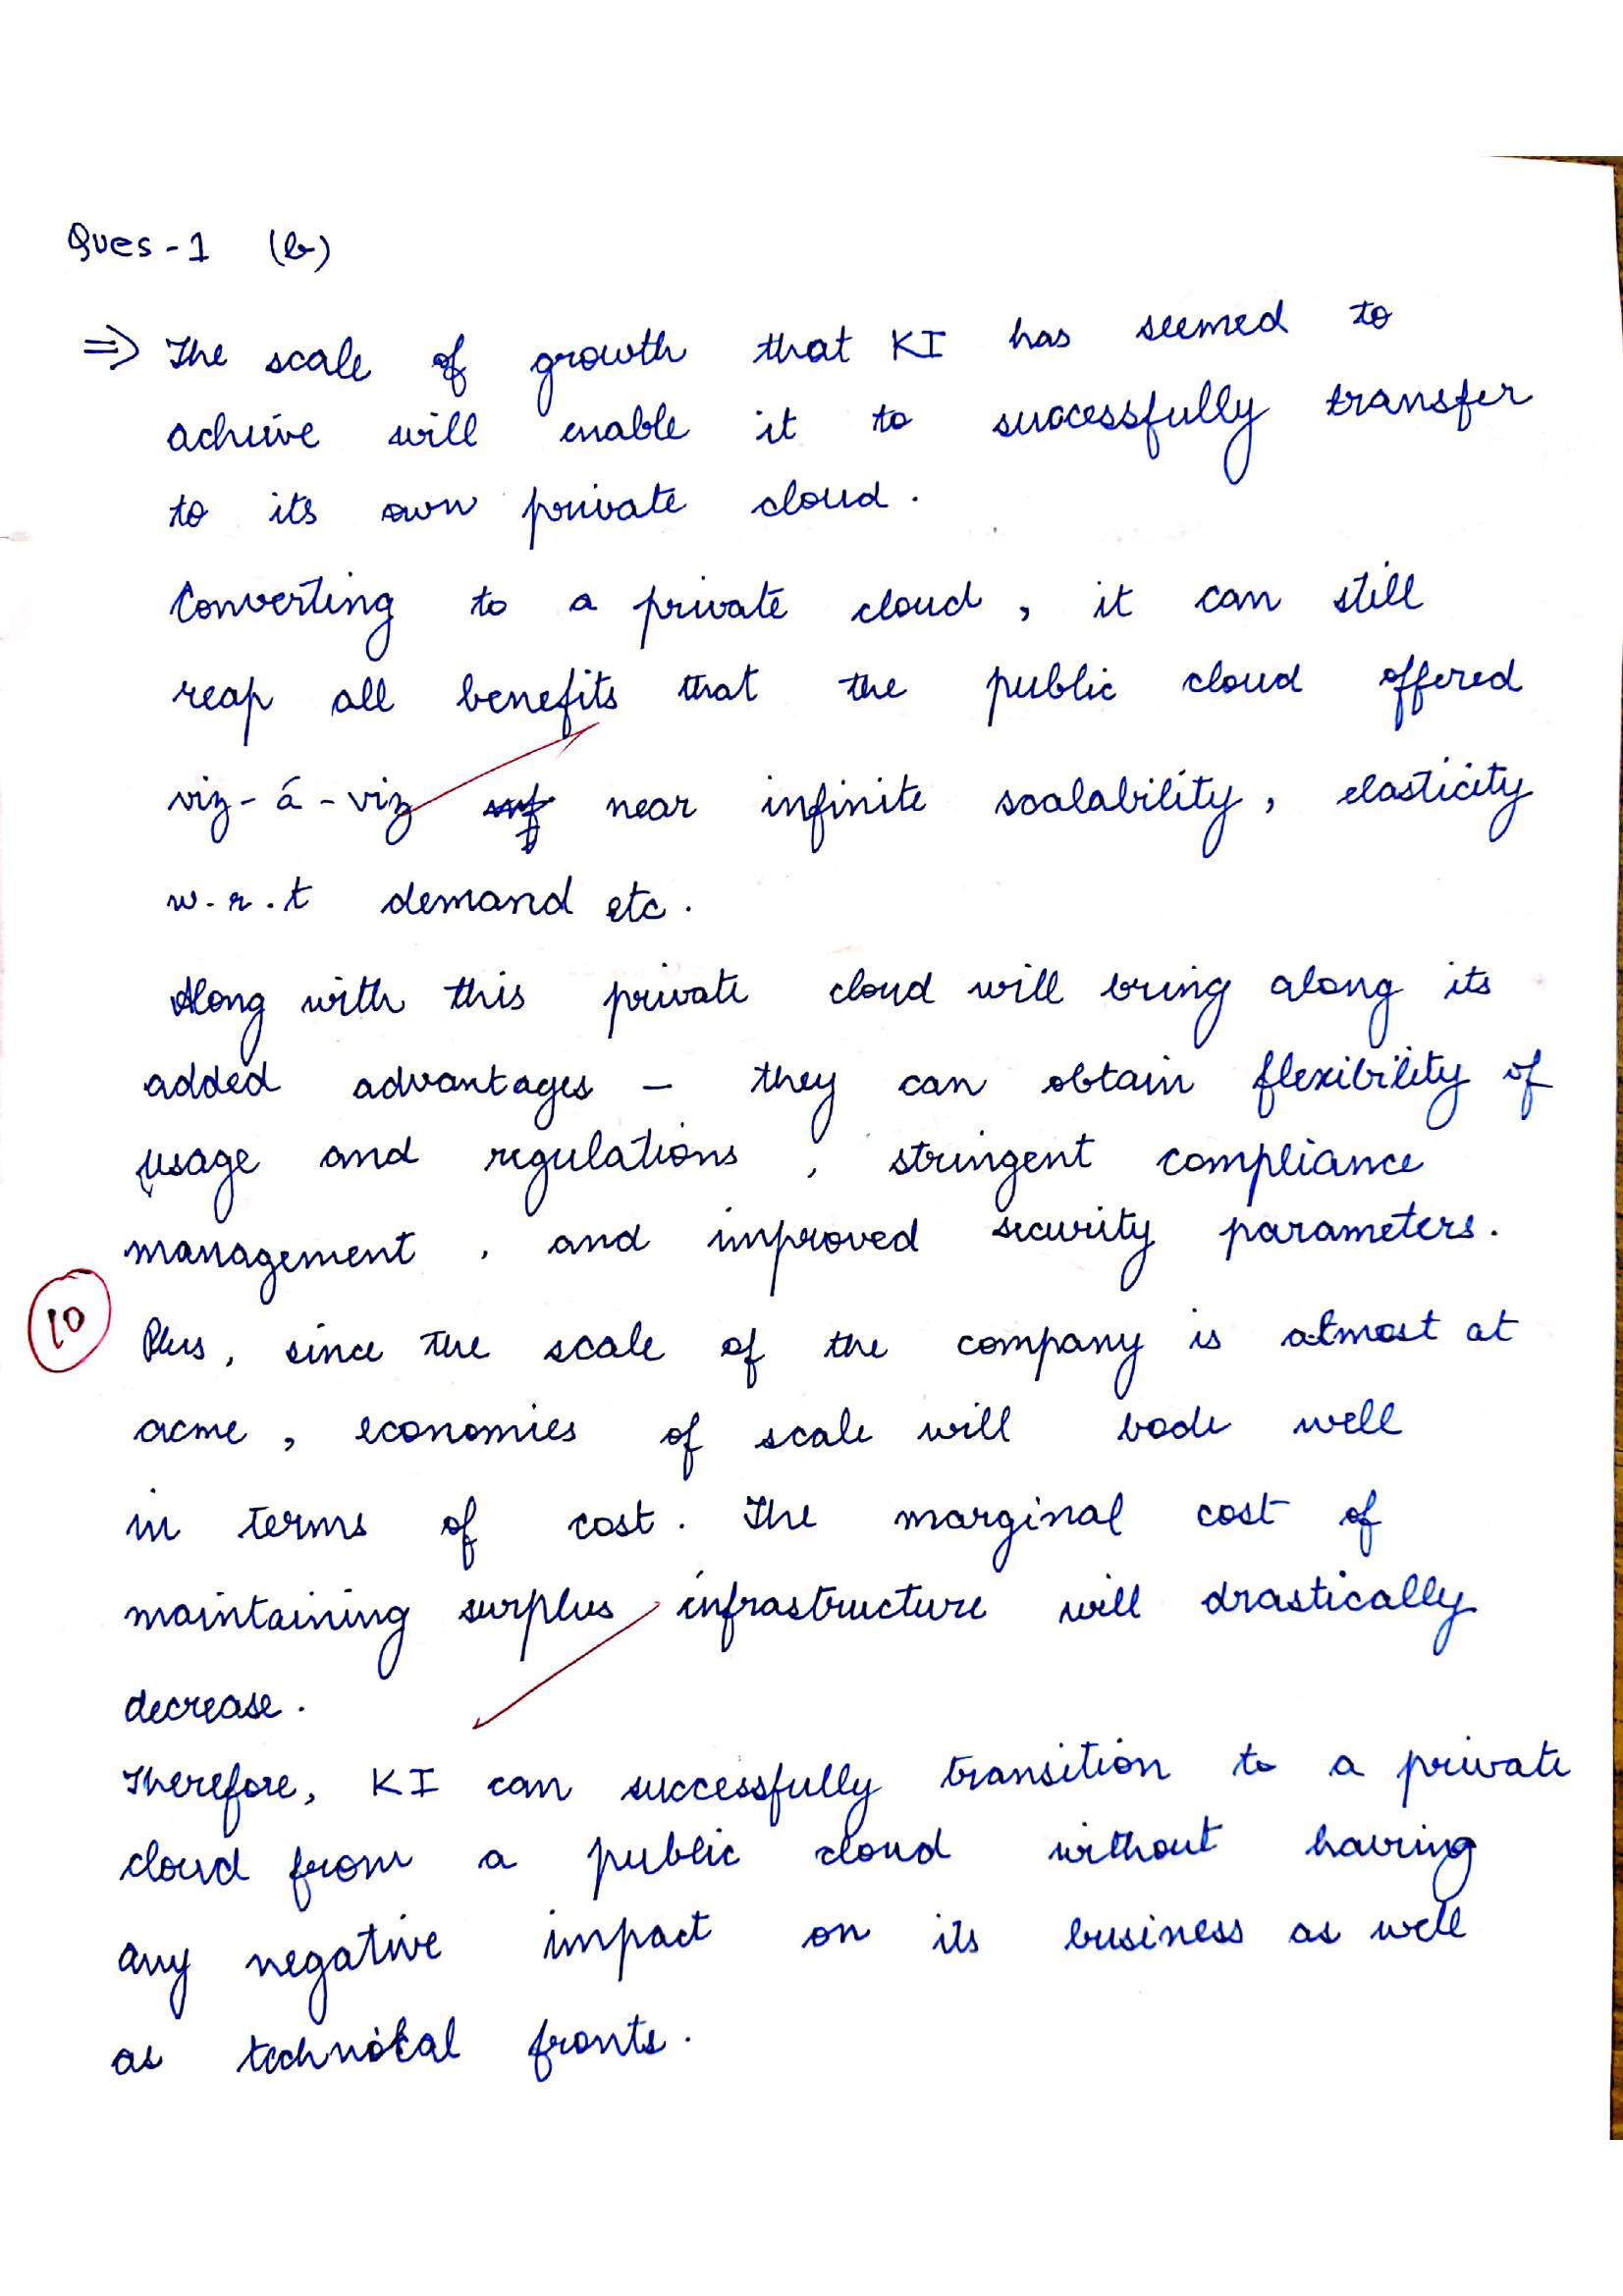 Ques-1 (b)
⇒ The scale of growth that KI has seemed to
achieve will enable it to successfully transfer
to its own private cloud.
Converting to a private cloud, it can still
reap all benefits that the public cloud offered
viz-á-viz near infinite scalability, elasticity
w.r.t demand etc.
Along with this private cloud will bring along its
added advantages – they can obtain flexibility of
usage and regulations, stringent compliance
management, and improved security parameters.
10
Plus, since the scale of the company is almost at
acme, economies of scale will bode well
in terms of cost. The marginal cost of
maintaining surplus infrastructure will drastically
decrease.
Therefore, KI can successfully transition to a private
cloud from a public cloud without having
any negative impact on its business as well
as technical fronts.